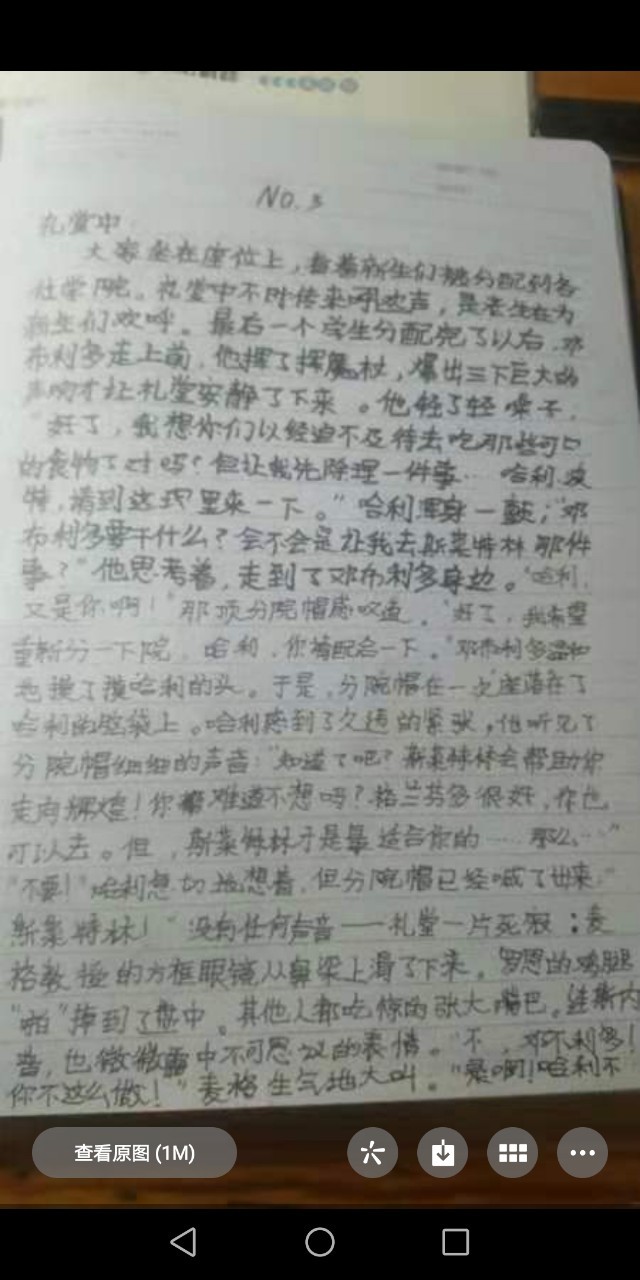 No.3
礼堂中
大家坐在座位上，看着新生们被分配到各
社学院。礼堂中不时传来吼吹声，是老生在为
新生们欢呼。最后一个学生分配完了以后，邓
布利多走上前，他挥了挥魔杖，爆出三下巨大的
声响才让礼堂安静了下来。他轻了轻嗓子，
“好了，我想你们以经迫不及待去吃那些可口
的食物了对吗？但让我先除理一件事… 哈利.波
特，请到这里来一下。”哈利浑身一颤；“邓
布利多要干什么？会不会是让我去斯莱特林那件
事？”他思考着，走到了邓布利多身边。“哈利，
又是你啊！”那顶分院帽感叹道。“好了，我希望
重新分一下院，哈利，你请配合一下。”邓布利多温和
地摸了摸哈利的头。于是，分院帽在一次座落在了
哈利的脑袋上。哈利感到了久违的紧张，他听见了
分院帽细细的声音：“知道了吧？斯莱特林会帮助你
走向辉煌！你难道不想吗？格兰芬多很好，你也
可以去。但，斯莱特林才是最适合你的……那么…”
“不要！”哈利急切地想着，但分院帽已经喊了出来”
斯莱特林！”没有任何声音——礼堂一片死寂；麦
格教授的方框眼镜从鼻梁上滑了下来，罗恩的鸡腿
“啪”掉到了盘中。其他人都吃惊的张大嘴巴。连斯内
普，也微微露中不可思议的表情。“不，邓不利多！
你不这么做！”麦格生气地大叫。“是啊！哈利不
查看原图 (1M)